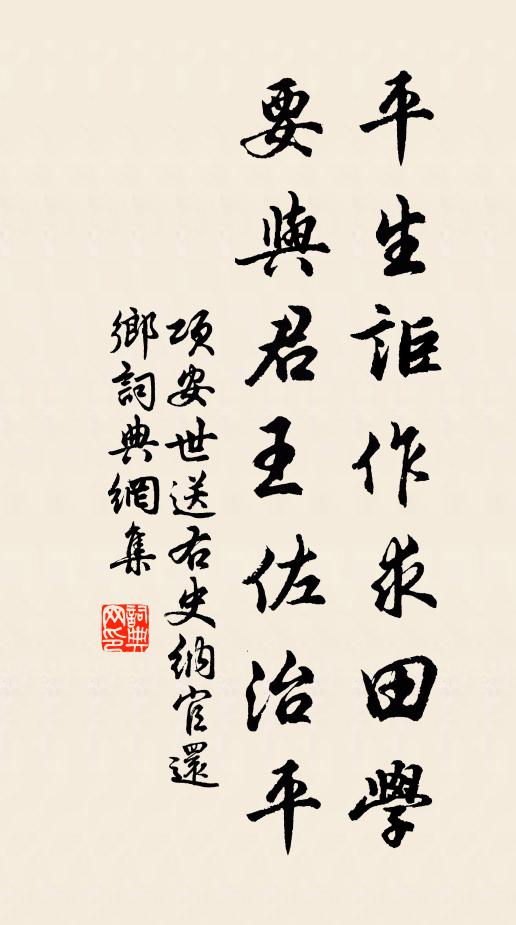 平生詎作求田學
要與君王佐治平
項安世送右史納官還
鄉詞典網集
詞典
网印